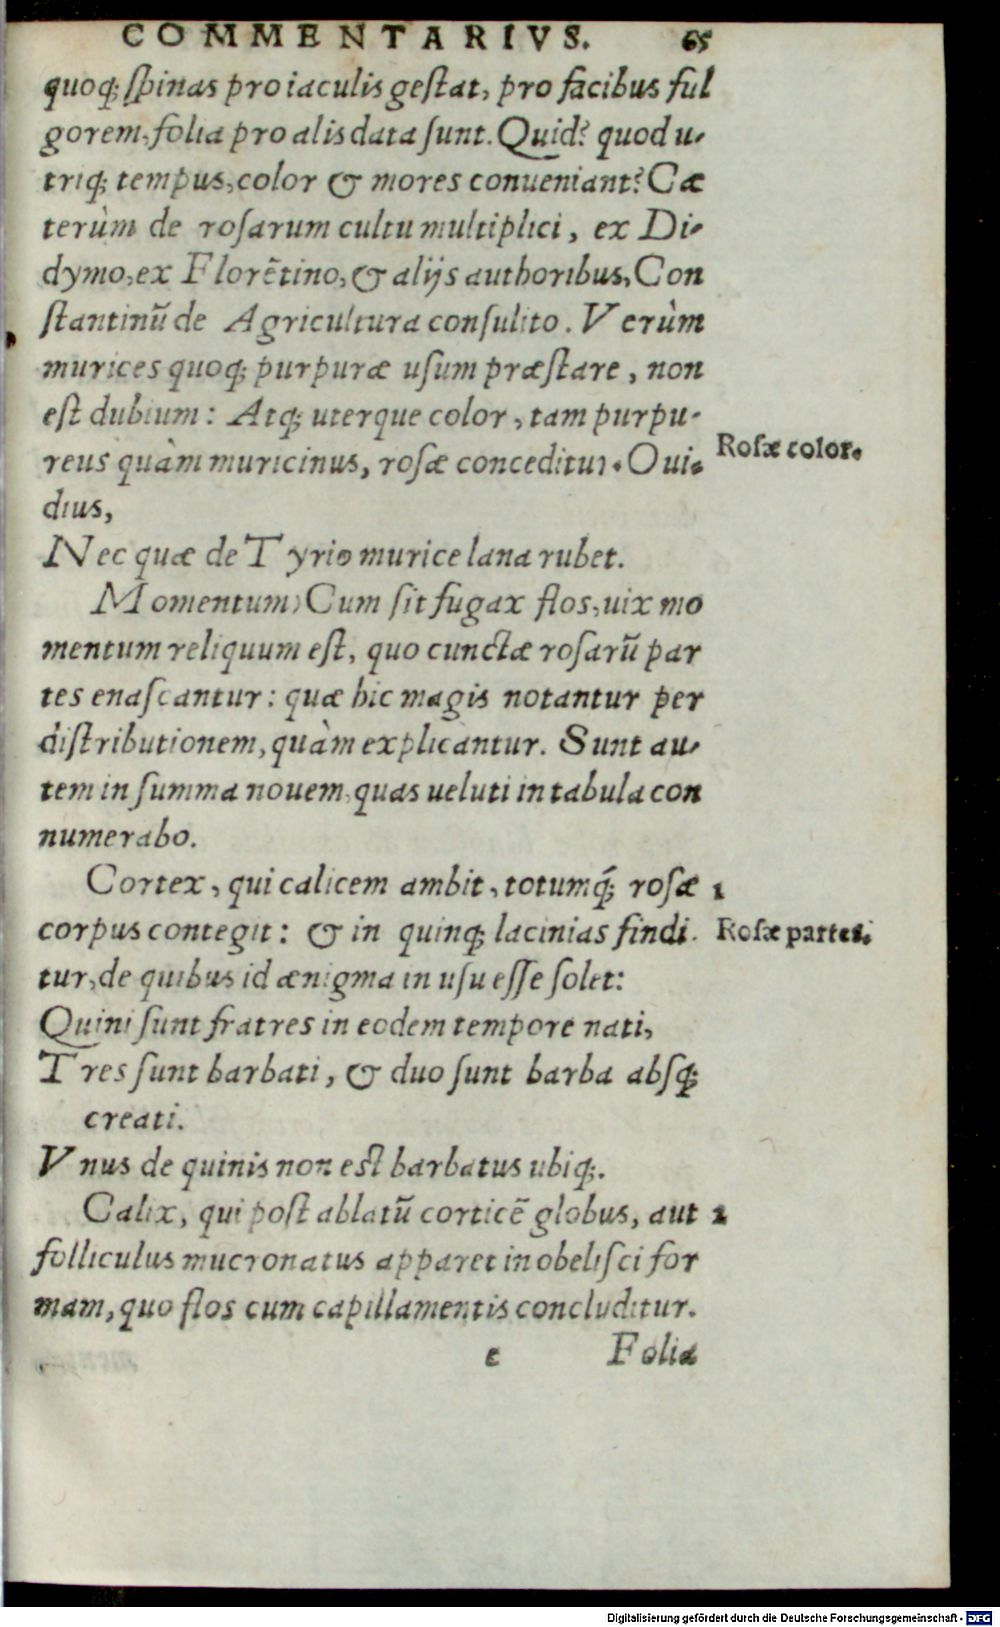 COMMENTARIVS. 65
quoq; ſpinas pro iaculis geſtat, pro facibus ful
gorem, folia pro alis data ſunt. Quid? quod u-
triq; tempus, color & mores conueniant? Cæ
terùm de roſarum cultu multiplici, ex Di-
dymo, ex Florētino, & alijs authoribus, Con
ſtantinū de Agricultura conſulito. Verùm
murices quoq; purpuræ uſum præſtare, non
eſt dubium: Atq; uterque color, tam purpu-
reus quàm muricinus, roſæ conceditur. Oui-
Roſæ color.
dius,
Nec quæ de Tyrio murice lana rubet.
Momentum) Cum ſit fugax flos, uix mo
mentum reliquum eſt, quo cunctæ roſarū par
tes enaſcantur: quæ hic magis notantur per
diſtributionem, quàm explicantur. Sunt au-
tem in ſumma nouem, quas ueluti in tabula con
numerabo.
Cortex, qui calicem ambit, totumq́; roſæ 1
corpus contegit: & in quinq; lacinias findi-
Roſæ partes.
tur, de quibus id ænigma in uſu eſſe ſolet:
Quini ſunt fratres in eodem tempore nati,
Tres ſunt barbati, & duo ſunt barba abſq;
creati.
Vnus de quinis non eſt barbatus ubiq;.
Calix, qui poſt ablatū corticē globus, aut 2
folliculus mucronatus apparet in obeliſci for
mam, quo flos cum capillamentis concluditur.
e Folia
Digitalisierung gefördert durch die Deutsche Forschungsgemeinschaft - DFG